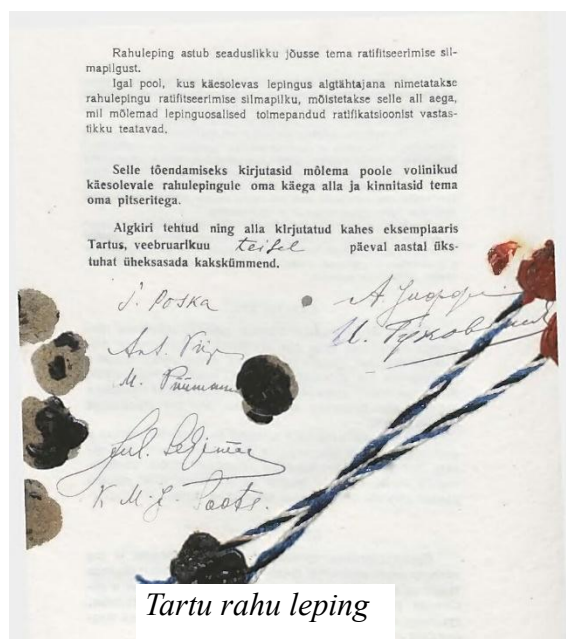 Rahuleping astub seaduslikku jõusse tema ratifitseerimise sil-
mapilgust.
Igal pool, kus käesolevas lepingus algtähtajana nimetatakse
rahulepingu ratifitseerimise silmapilku, mõistetakse selle all aega,
mil mõlemad lepinguosalised toimepandud ratifikatsioonist vastas-
tikku teatavad.
Selle tõendamiseks kirjutasid mõlema poole volinikud
käesolevale rahulepingule oma käega alla ja kinnitasid tema
oma pitseritega.
Algkiri tehtud ning alla kirjutatud kahes eksemplaaris
Tartus, veebruarikuu teisel päeval aastal üks-
tuhat üheksasada kakskümmend.
J. Poska
А. Иоффе
Ant. Piip
М. Püümann
Jul. Seljamaa
Tartu rahu leping